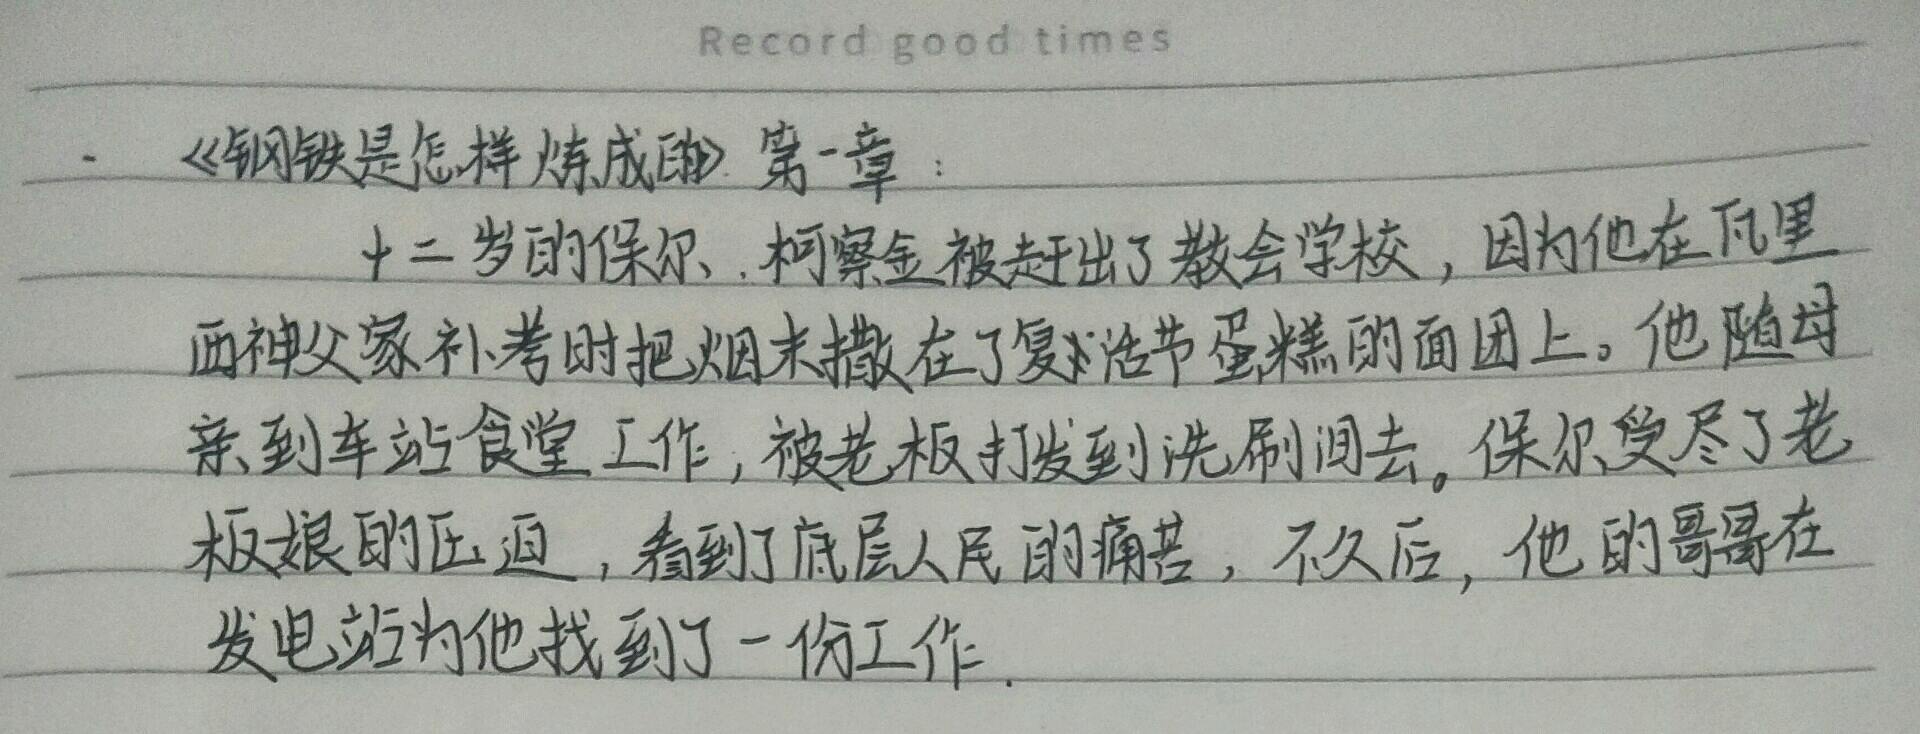 Record good times
《钢铁是怎样炼成的》第一章:
十二岁的保尔.柯察金被赶出了教会学校，因为他在瓦里
西神父家补考时把烟末撒在了复活节蛋糕的面团上。他随母
亲到车站食堂工作，被老板打发到洗刷间去。保尔受尽了老
板娘的压迫，看到了底层人民的痛苦，不久后，他的哥哥在
发电站为他找到了一份工作.